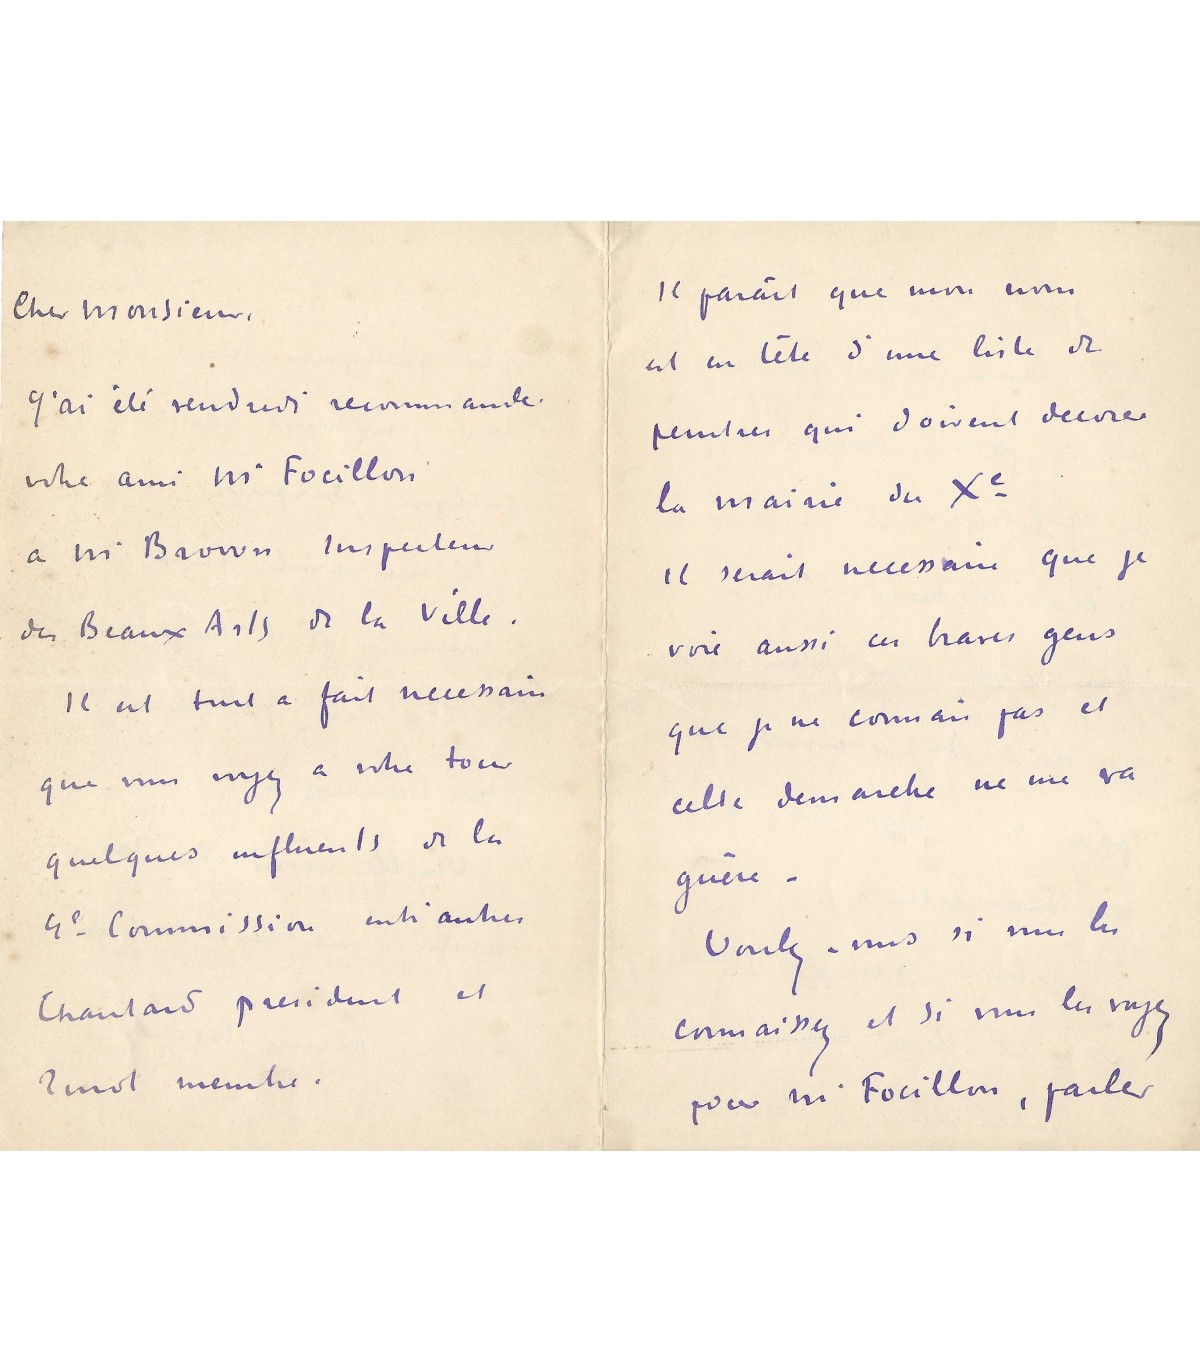 Cher Monsieur,
J'ai été vendredi recommander
votre ami Mr Focillon
a Mr Brown Inspecteur
des Beaux Arts de la Ville.
Il est tout a fait necessaire
que vous voyez a votre tour
quelques influents de la
4e Commission entr'autres
Chautard president et
membre.
Il paraît que mon nom
est en tête d'une liste de
peintres qui doivent decorer
la mairie du Xe
Il serait necessaire que je
voie aussi ces braves gens
que je ne connais pas et
cette demarche ne me va
guère -
Voulez-vous si vous les
connaissez et si vous les voyez
pour Mr Focillon, parler